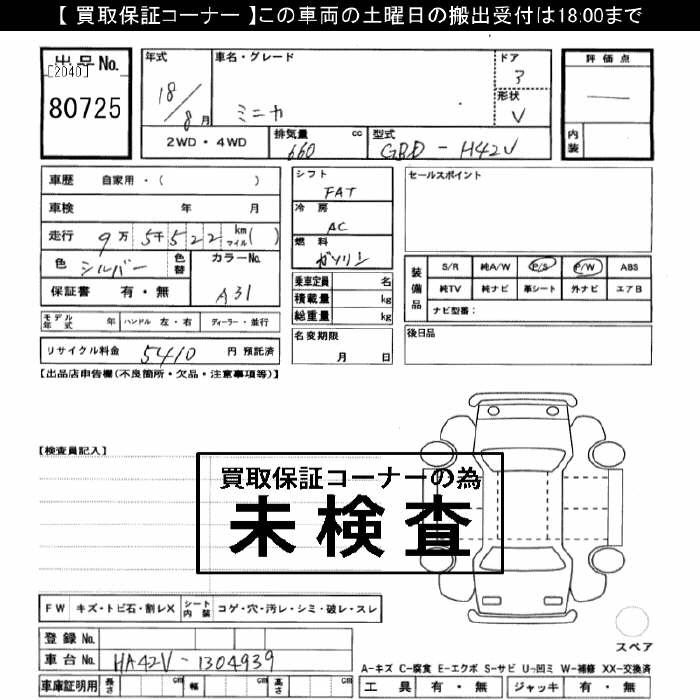 【 買取保証コーナー 】この車両の土曜日の搬出受付は18:00まで
出品No.
[2040]
80725
年式
18/8月
車名・グレード
ミニカ
ドア
ア
形状
V
評価点
—
内装
2WD・4WD
排気量 cc
660
型式
GBD-H42V
車歴 自家用・( )
車検 年 月
走行 9万5千522 km マイル ( )
色 シルバー
色替
カラーNo.
A31
保証書 有・無
モデル年式 年 ハンドル 左・右 ディーラー・並行
リサイクル料金 5410 円 預託済
シフト
FAT
冷房
AC
燃料
ガソリン
乗車定員 名
積載量 kg
総重量 kg
名変期限
月 日
セールスポイント
装備品
S/R 純A/W P/S P/W ABS
純TV 純ナビ 革シート 外ナビ エアB
ナビ型番:
後日品
【出品店申告欄(不良箇所・欠品・注意事項等)】
【検査員記入】
買取保証コーナーの為
未検査
FW キズ・トビ石・割レX シート内装 コゲ・穴・汚レ・シミ・破レ・スレ
登録No.
車台No. HA42V-1304939
車庫証明用 長さ cm 幅 cm 高さ cm
スペア
A-キズ C-腐食 E-エクボ S-サビ U-凹ミ W-補修 XX-交換済
工具 有・無 ジャッキ 有・無